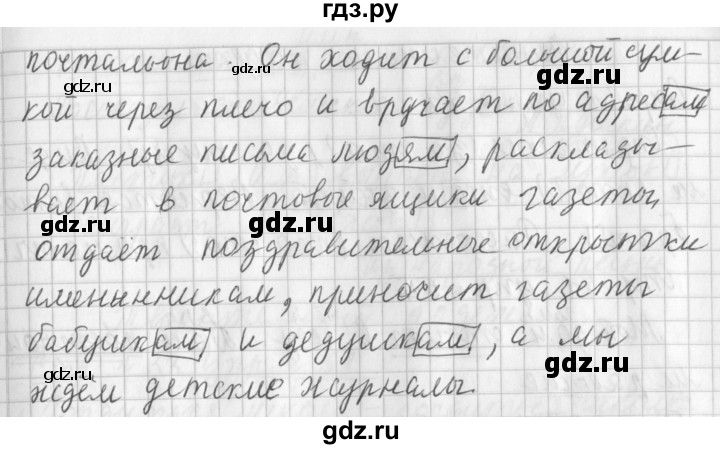 гдз.ру
почтальона. Он ходит с большой сум-
gdz.ru
gdz.ru
кой через плечо и вручает по адресам
заказные письма людям, расклады-
вает в почтовые ящики газеты,
gdz.ru
gdz.ru
отдаёт поздравительные открытки
именинникам, приносит газеты
бабушкам и дедушкам, а мы
gdz.ru
gdz.ru
ждём детские журналы.
gdz.ru